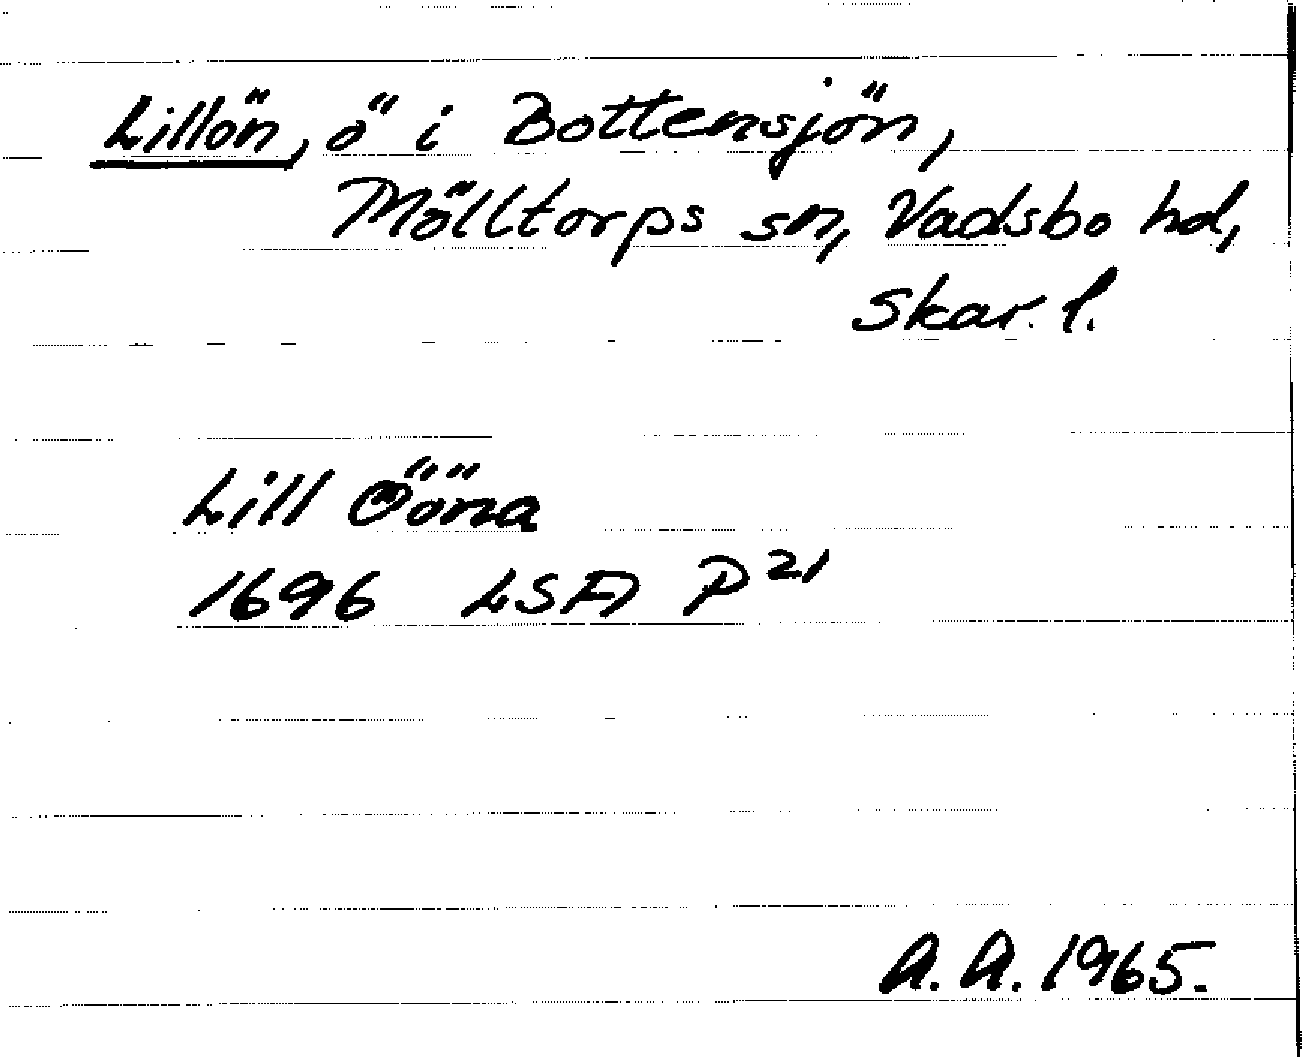 Lillön, ö i Bottensjön,
Mölltorps sn, Vadsbo hd,
Skar. l.
Lill Ööna
1696 LSA P 21
A. A. 1965.